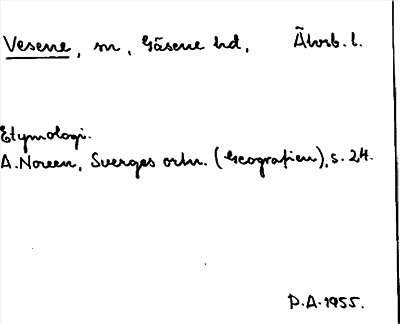 Vesene, sn, Gäsene hd, Älvsb. l.
Etymologi.
A. Noreen, Sveriges ortn. (Geografien), s. 24.
P.A. 1955.